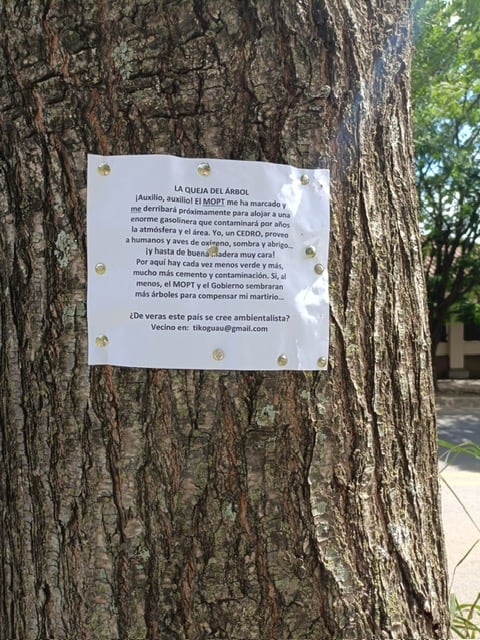 LA QUEJA DEL ÁRBOL
¡Auxilio, auxilio! El MOPT me ha marcado y
me derribará próximamente para alojar a una
enorme gasolinera que contaminará por años
la atmósfera y el área. Yo, un CEDRO, proveo
a humanos y aves de oxígeno, sombra y abrigo...
¡y hasta de buena madera muy cara!
Por aquí hay cada vez menos verde y más,
mucho más cemento y contaminación. Si, al
menos, el MOPT y el Gobierno sembraran
más árboles para compensar mi martirio...
¿De veras este país se cree ambientalista?
Vecino en: tikoguau@gmail.com